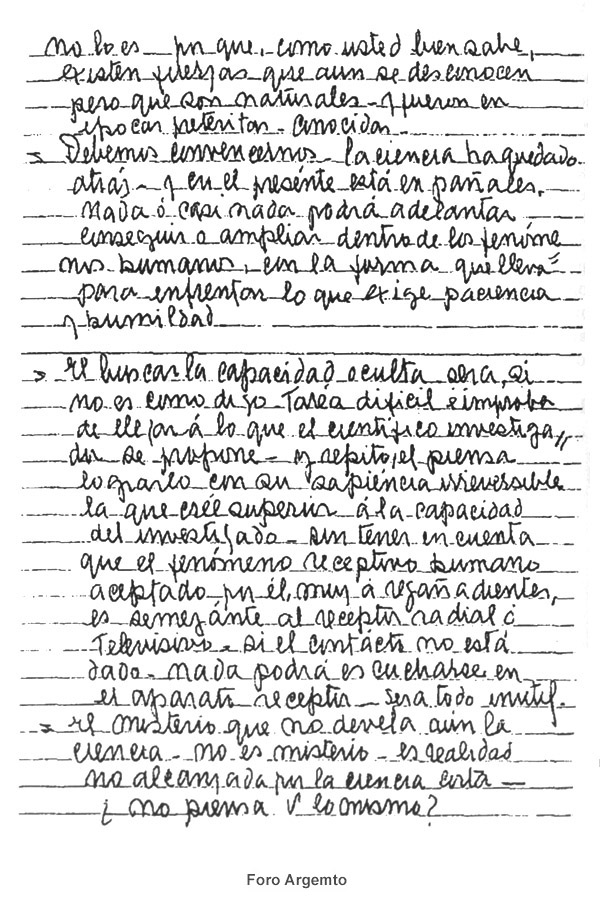 no lo es - por que, como usted bien sabe,
existen fuerzas que aun se desconocen
pero que son naturales - y fueron en
epocas preteritas - conocidas -
> Debemos convencernos - la ciencia ha quedado
atrás - y en el presénte está en pañales,
Nada ó casi nada podrá adelantar
conseguir o ampliar dentro de los fenóme
nos humanos, con la forma que lleva
para enfrentar lo que exige paciencia
y humildad
> El buscar la capacidad oculta sera, si
no es como digo Taréa dificil é improba
de llegar á lo que el cientifico investiga
dor se propone - y repito, el piensa
lograrlo con su sapiéncia irreversible
la que creé superior á la capacidad
del investigado - sin tener en cuenta
que el fenómeno receptivo humano
aceptado por él, muy a regañadientes,
es semejánte al receptor radial ó
Televisivo - si el contácto no está
dado - Nada podrá escucharse en
el aparato receptor - sera todo inutil.
> El misterio que no devela aún la
ciencia - no es misterio - es realidad
no alcanzada por la ciencia corta -
¿ no piensa V lo mismo?
Foro Argemto